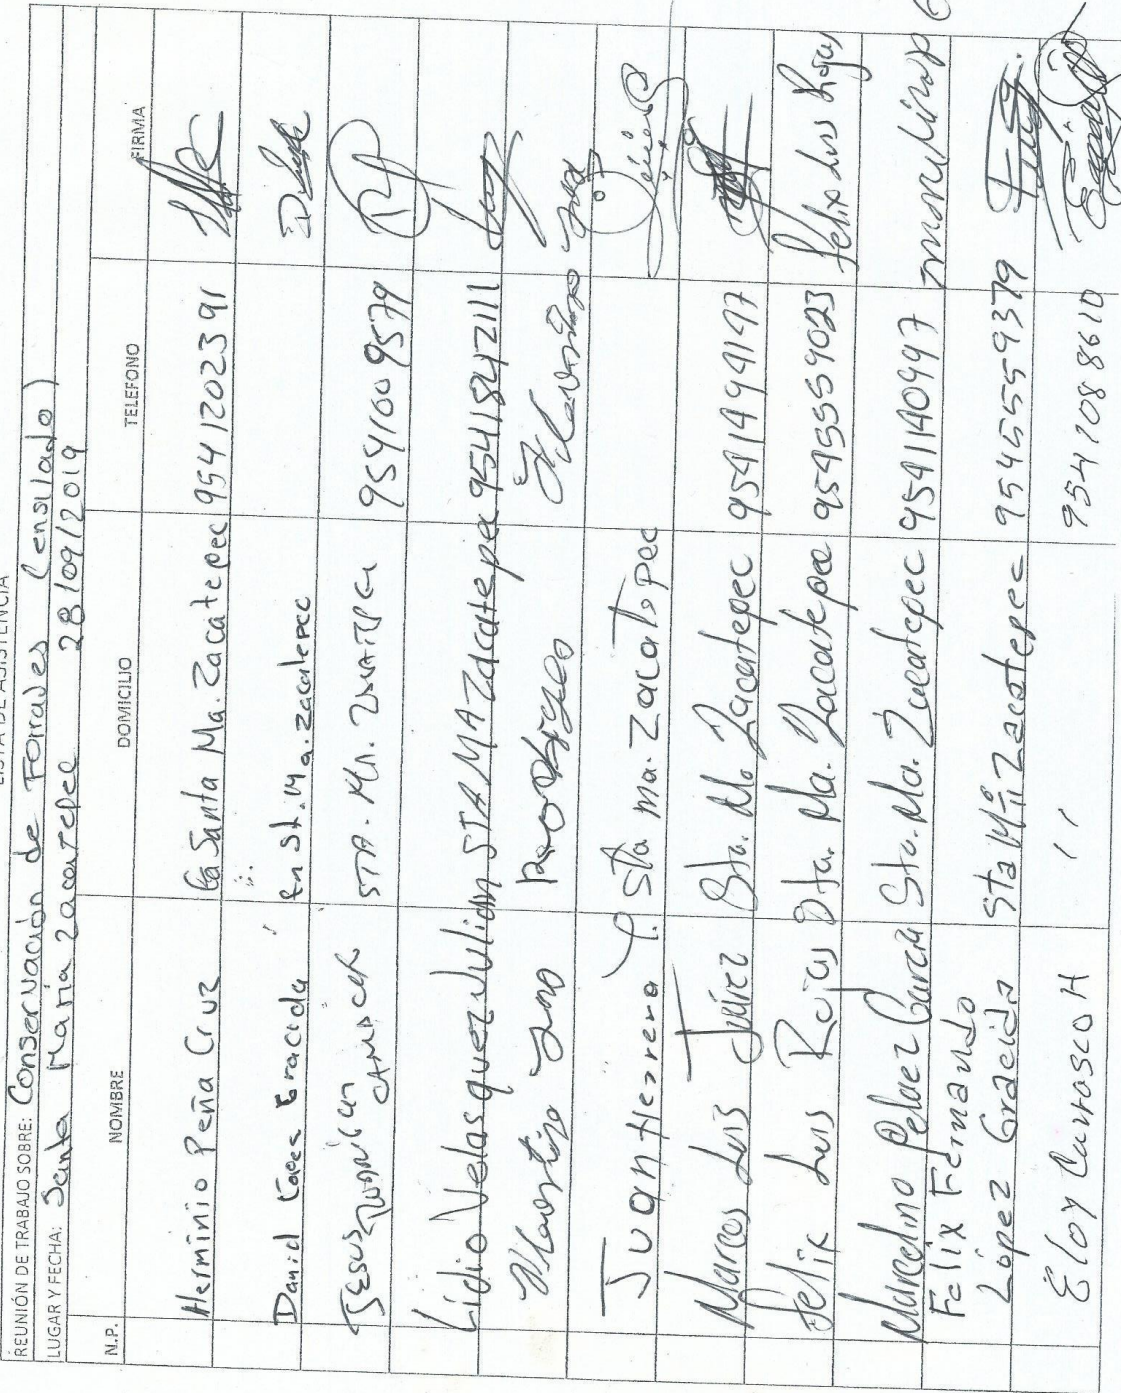 LISTA DE ASISTENCIA
REUNIÓN DE TRABAJO SOBRE: Conservación de Forrajes (ensilado)
LUGAR Y FECHA: Santa María Zacatepec 28/09/2019
N.P. NOMBRE DOMICILIO TELEFONO FIRMA
Herminio Peña Cruz Santa Ma. Zacatepec 954 1202391
Daniel Gracida En St. Ma. Zacatepec
JESUS STA. MA. 9541009579
Lidio Velasquez Julian STA MA Zacatepec 9541847111
Juan Herrera Sta ma. Zacatepec
Marcos Luis Juárez Sta. Ma. Zacatepec 9541494197
Felix Luis Rojas Sta. Ma. Zacatepec 9545559023 Felix Luis Rojas
Marcelino Pelaez García Sta. Ma. Zacatepec 9541140947
Felix Fernando
López Gracida Sta Mª Zacatepec 9545559379
Eloy Carrasco H / / 9541088610